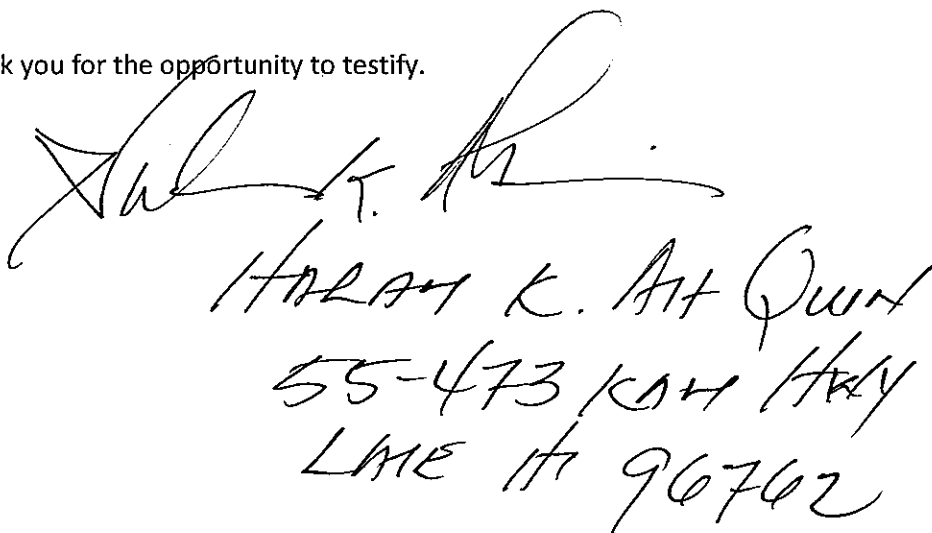 k you for the opportunity to testify.
K.
HARLAN K. AH QUIN
55-473 KAM HWY
LAIE HI 96762